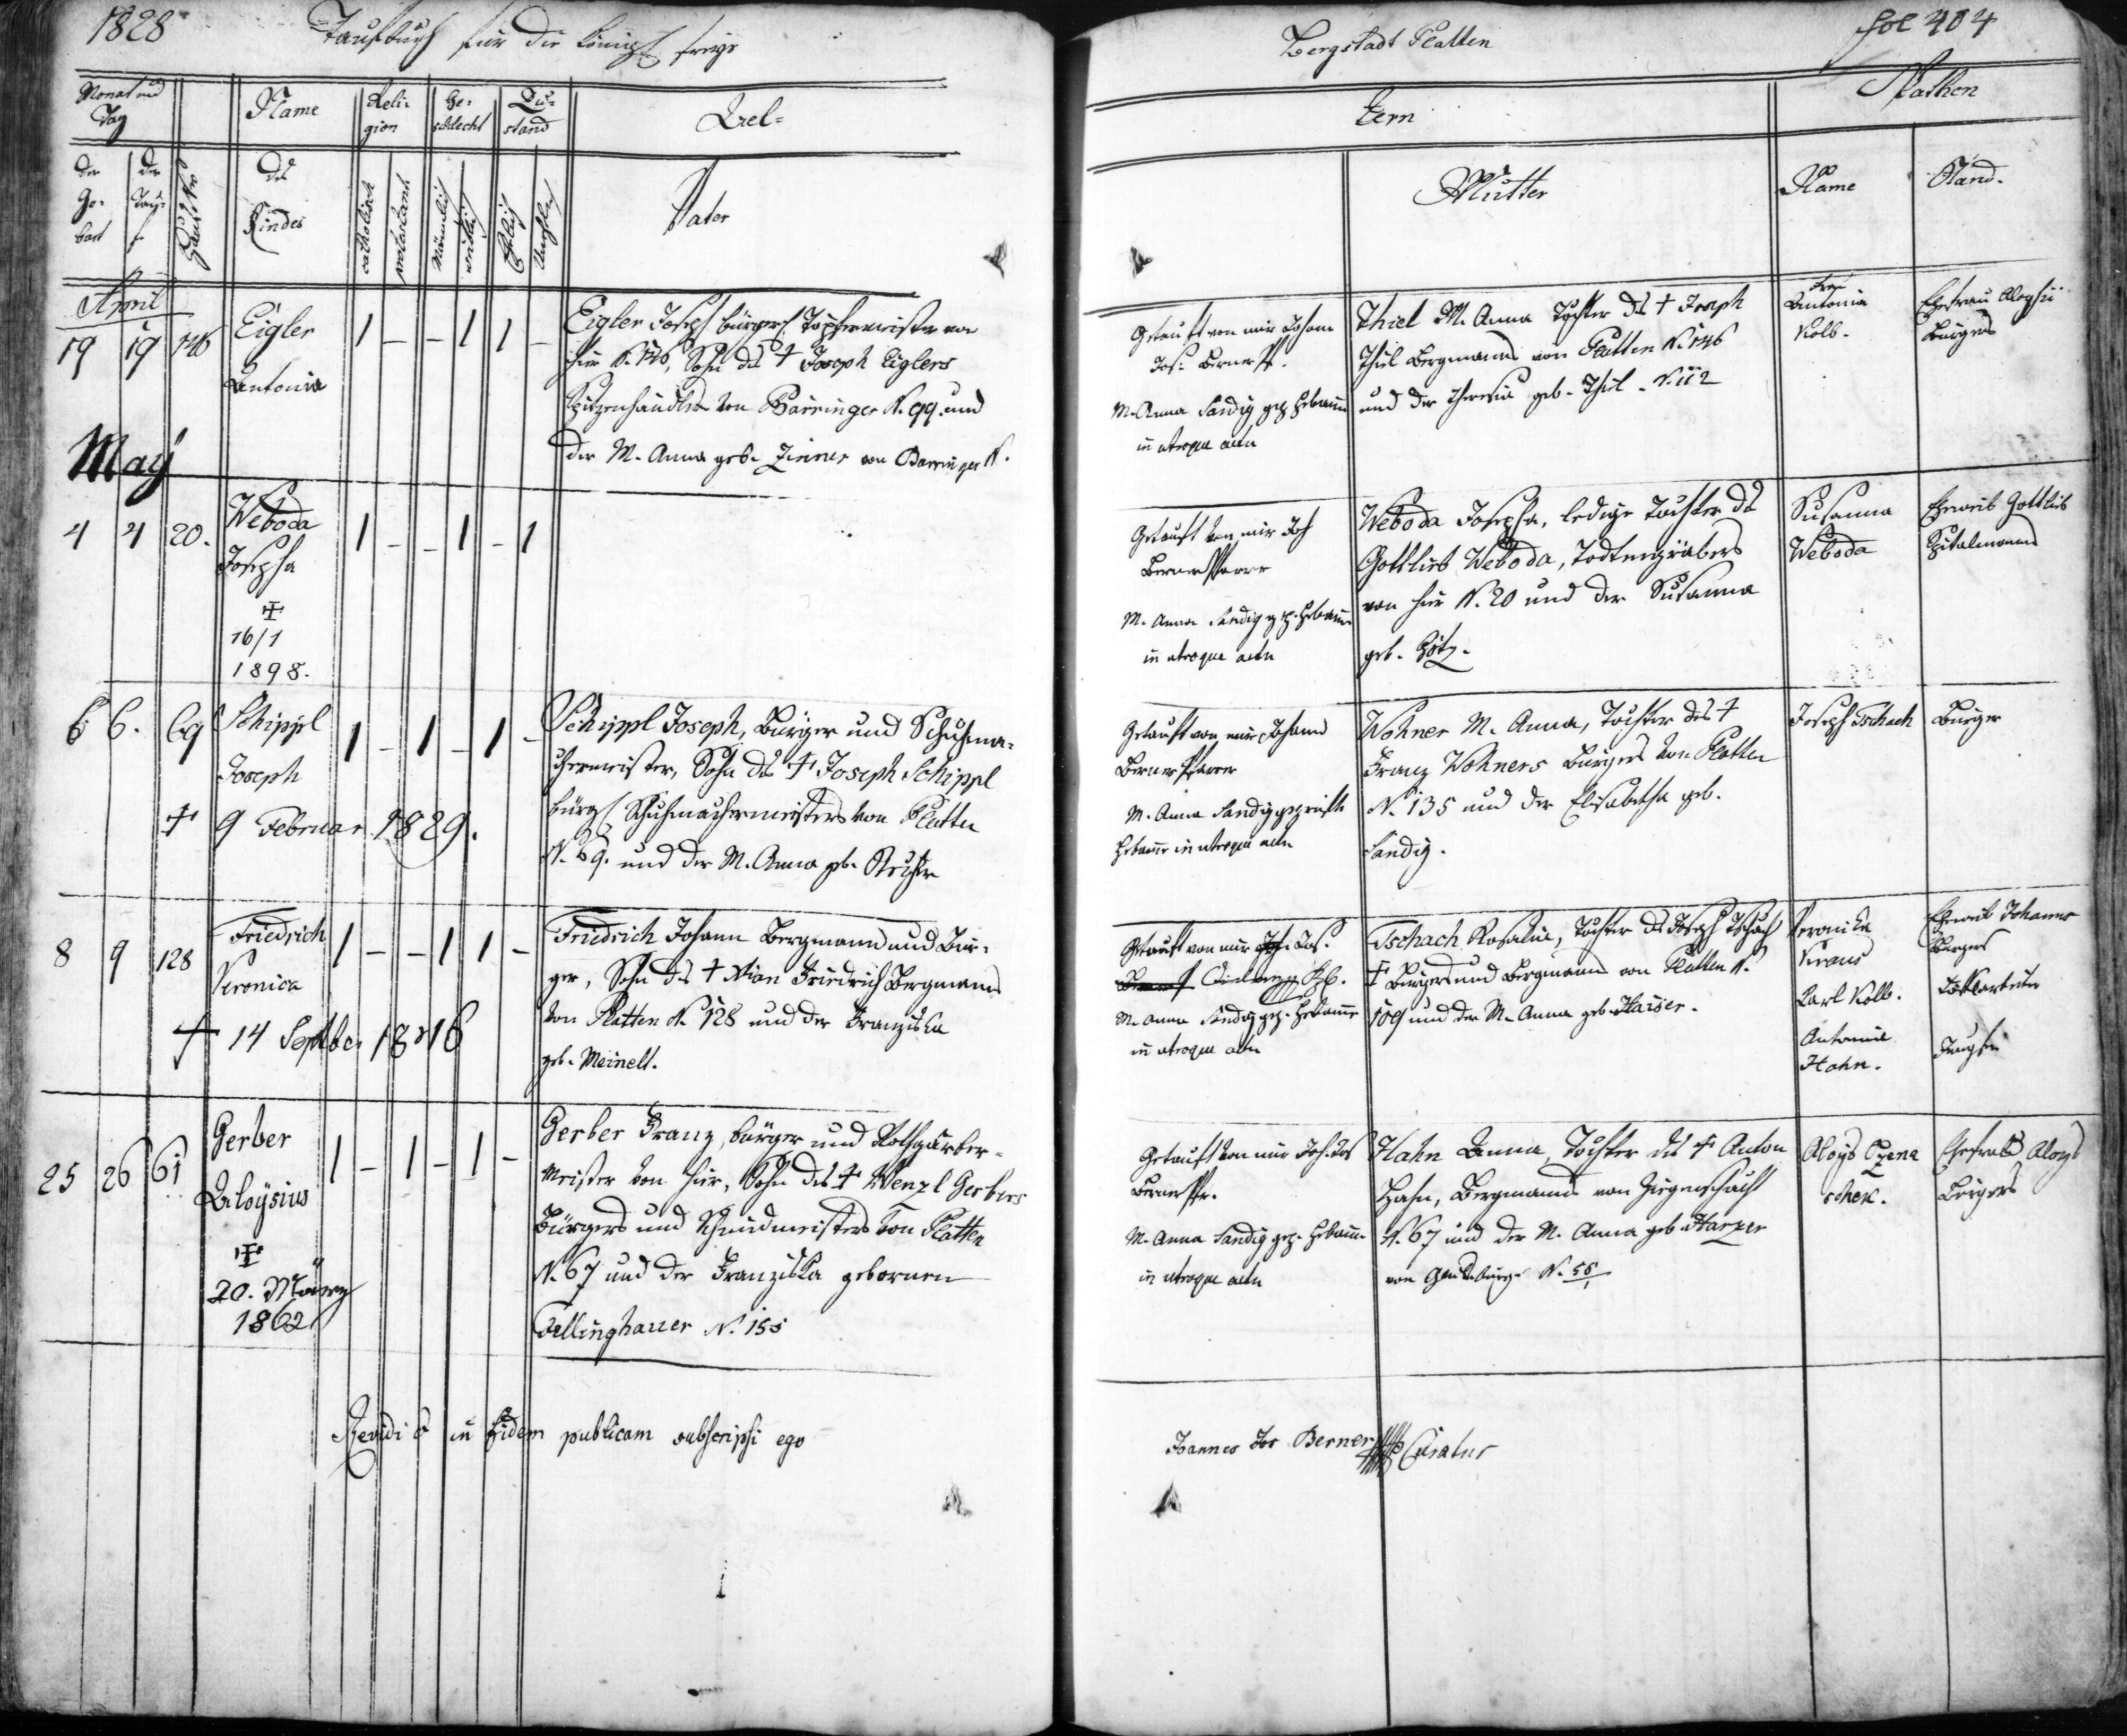 1828 Taufbuch für die königl freye
Bergstadt Platten fol 404
Monat und Tag
der Geburt
der Taufe
Haus Nro
Name
des
Kindes
Religion
catholisch
protestant
Geschlecht
Männlich
weiblich
Zustand
Ehelich
Unehlich
Ael=
tern
Vater
Mutter
Pathen
Name
Stand.
April
19 19 146 Eigler
Antonia
1 – – 1 1 –
Eigler Joseph bürgerl Töpfermeister von
hier N. 146, Sohn des † Joseph Eiglers
Spitzenhändlers von Bärringer N. 99. und
der M. Anna geb. Zinner von Barringer N.
Getauft von mir Johann
Jos: Berner Pf.
M. Anna Sandig gep Hebamme
in utroque actu
Thiel M. Anna Tochter des † Joseph
Thiel Bergmanns von Platten N. 146
und der Theresia geb. Thiel. N. 112
Frau
Antonia
Kolb.
Ehefrau Aloysii
Bürgers
May
4 4 20. Weboda
Josepha
‡
16/1
1898.
1 – – 1 – 1
Getauft von mir Joh
Berner Pfarrer
M. Anna Sandig gep. Hebamme
in utroque actu
Weboda Josepha, ledige Tochter des
Gottlieb Weboda, Todtengräbers
von hier N. 20 und der Susanna
geb. Götz.
Susanna
Weboda
Eheweib Gottlieb
Spitalmanns
6 6. 69 Schippl
Joseph
† 9 Februar 1829.
1 – 1 – 1 –
Schippl Joseph, Bürger und Schuhma=
chermeister, Sohn des † Joseph Schippl
bürgl Schuhmachermeisters von Platten
N. 69. und der M. Anna geb.
Getauft von mir Johann
Berner Pfarrer
M. Anna Sandig geprüfte
Hebamme in utroque actu
Wohner M. Anna, Tochter des †
Franz Wohners Bürgers von Platten
N. 135 und der Elisabetha geb.
Sandig.
Joseph Tschach
Bürger
8 9 128 Friedrich
Veronica
† 14 Septber 1846
1 – – 1 1 –
Friedrich Johann Bergmann und Bür=
ger, Sohn des † Friedrich Bergmanns
von Platten N. 128 und der Franziska
geb. Meinelt.
Getauft von mir Jos.
M. Anna Sandig gep. Hebamme
in utroque actu
Tschach Rosalia, Tochter des Joseph Tschach
† Bürgers und Bergmanns von Platten N.
109 und der M. Anna geb. Haiser.
Veronika
Kraus
Karl Kolb.
Antonia
Hahn.
Eheweib Johanns
Bürgers
Jungfer
25 26 61 Gerber
Aloÿsius
‡
20. März
1862
1 – 1 – 1 –
Gerber Franz, bürger und Rothgärber=
Meister von hier, Sohn des † Wenzl Gerbers
Bürgers und Schmidmeisters von Platten
N. 67 und der Franziska gebornen
Fellinghauer N. 155
Getauft von mir Joh. Jos
Berner Pfr.
M. Anna Sandig gep. Hebamm.
in utroque actu
Hahn Anna, Tochter des † Anton
Hahn, Bergmanns von Ziegenschacht
N. 67 und der M. Anna geb. Harzer
von N. 55
Aloys Czena
schek.
Ehefrau Aloys
Bürgers
Revidi & in Fidem publicam subscripsi ego
Joannes Jos Berner Curatus